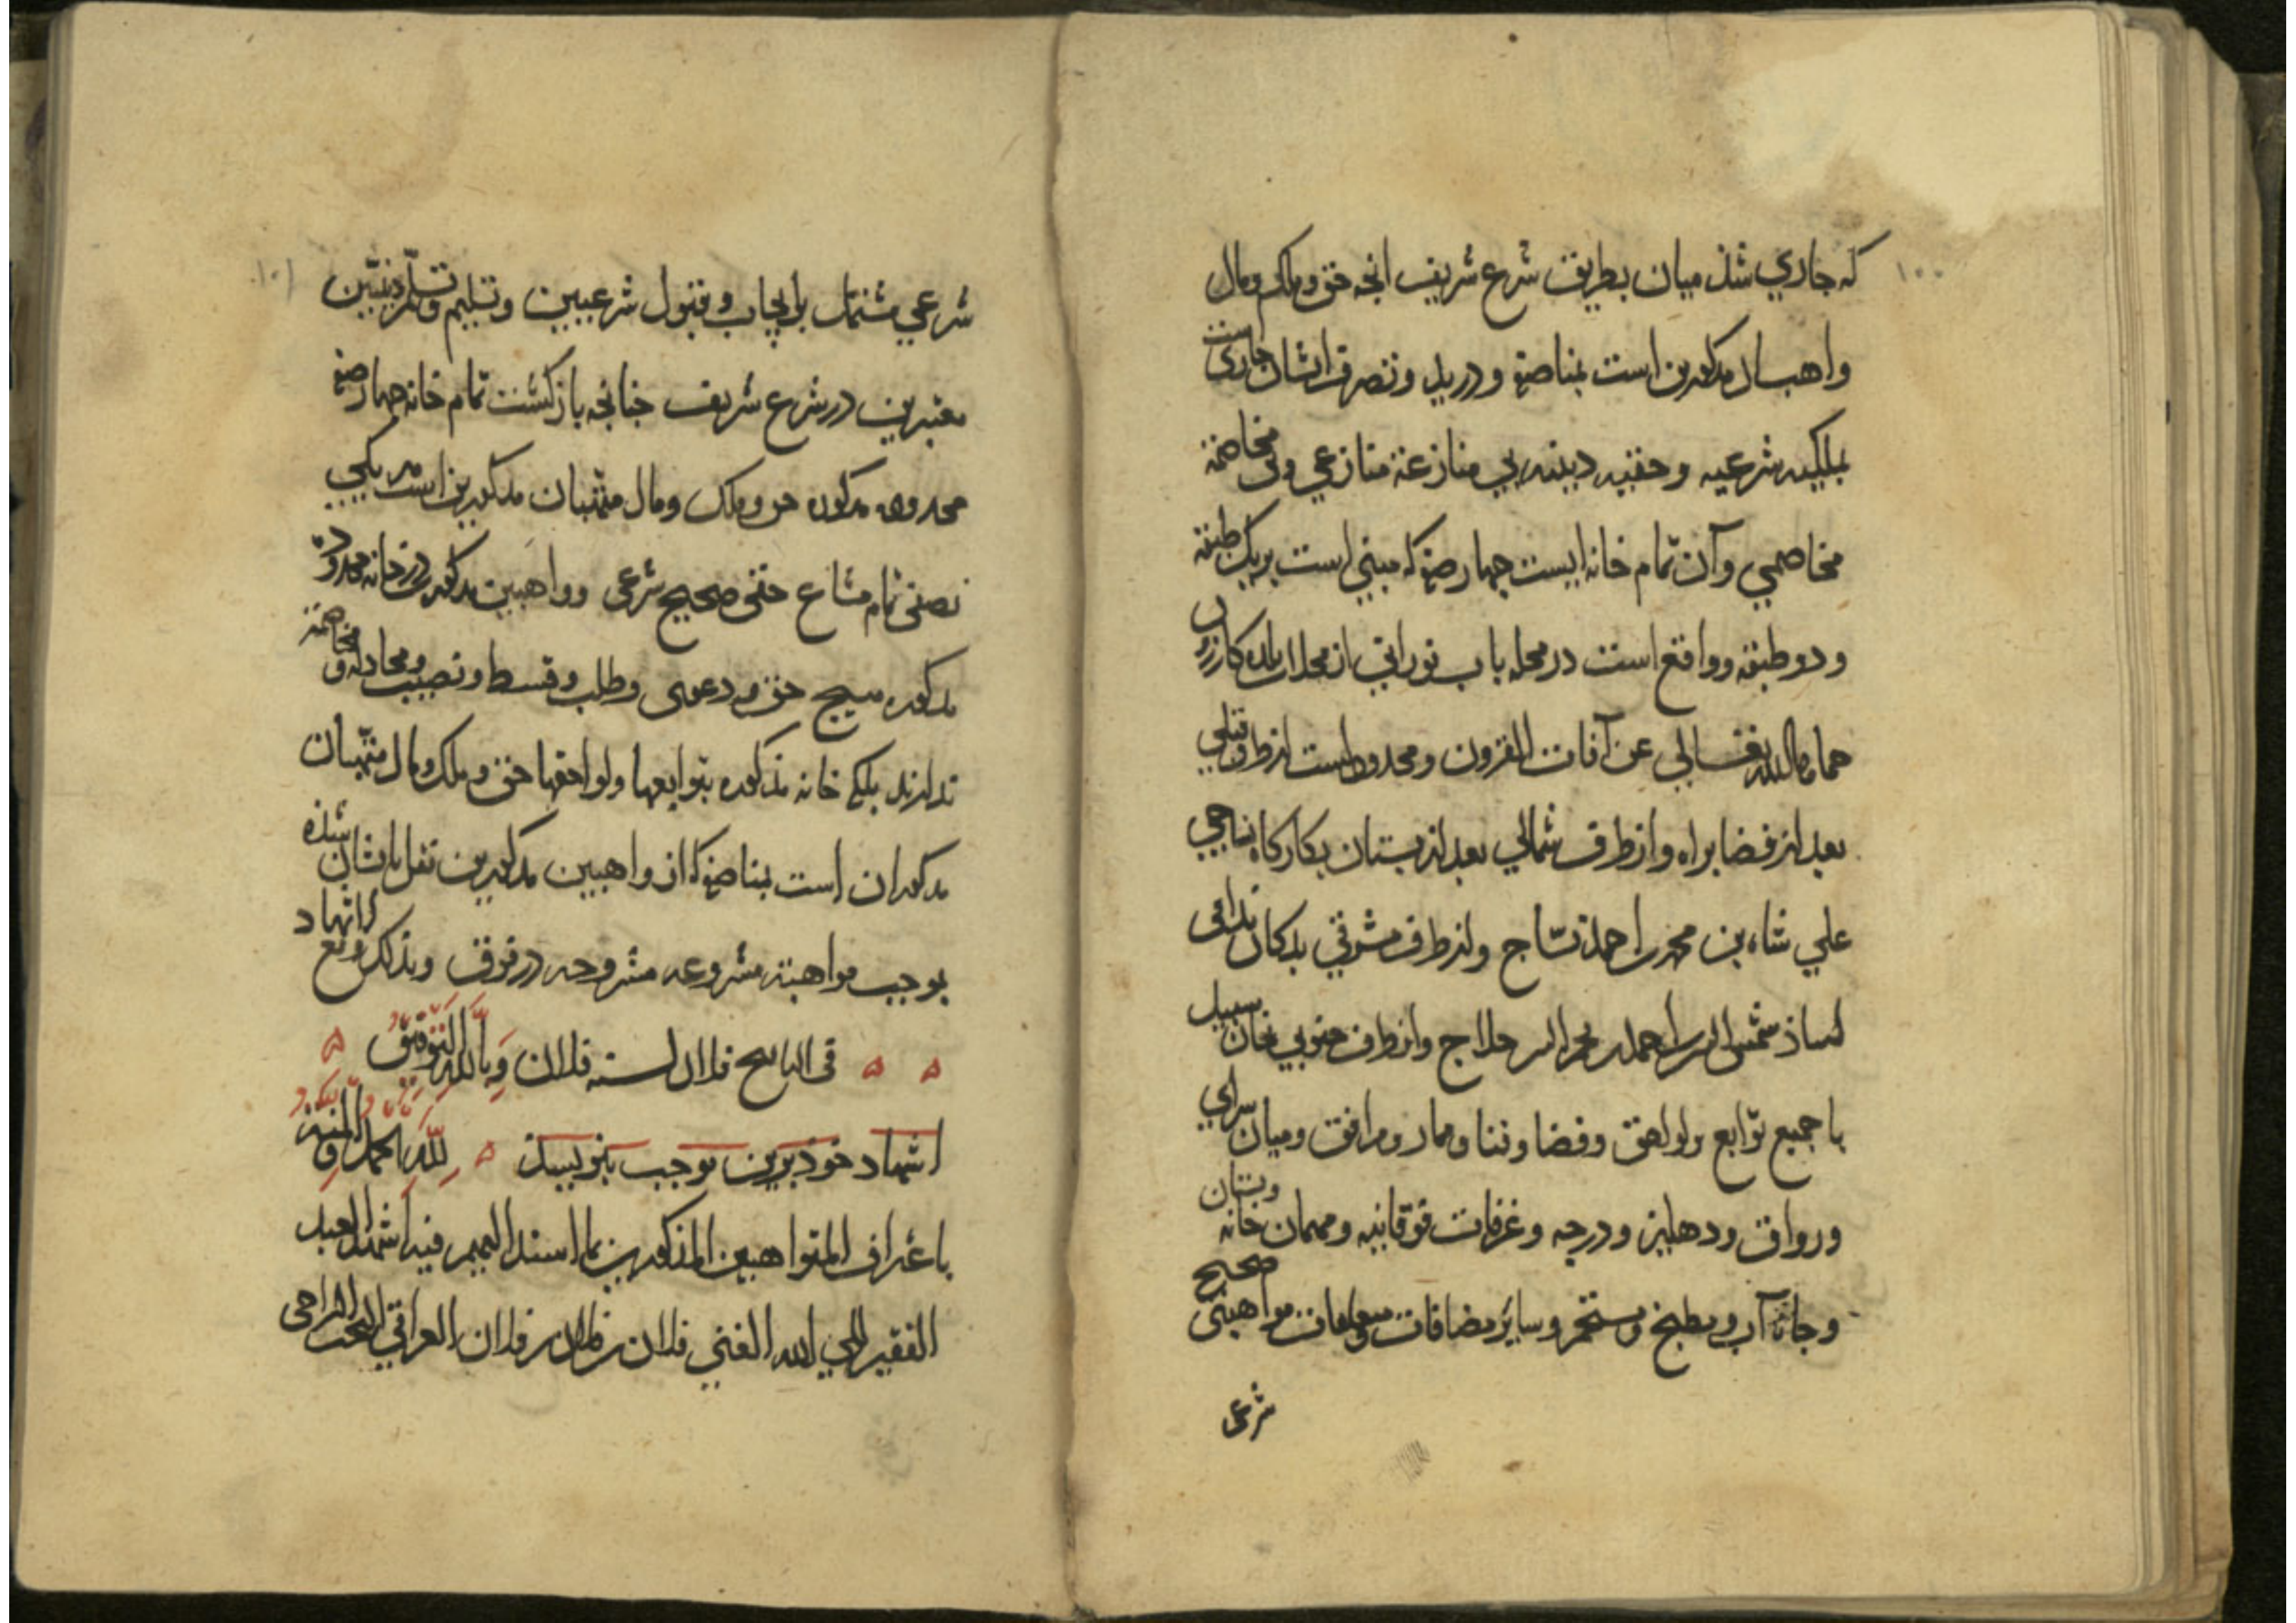 ۱۰۰
که جاري شذ میان بطریق شرع شریف انچه حق و ملک و مال
واهبان مذکورین است بمناصفه و در ید و تصرف ایشان جاریست
بملکیه شرعیه و حقیه دینیه بي منازعة منازعي و بي مخاصمة
مخاصمي و آن تمام خانه ایست چهار صفه که مبني است بر یک طبقه
و دو طبقه و واقع است در محله باب نوراني از محلات بلده کازرون
حماها الله تعالي عن آفات القرون و محدود است از طرف قبلي
بعد از فضا براه و از طرف شمالي بعد از بستان بکارکاه نساجي
علي شاه بن محمد بن احمد نساج و از طرف مشرقي بدکان ندافی
استاذ شمس الدین احمد حلاج و از طرف جنوبي بخان سبیل
با جمیع توابع و لواحق و فضا و فنا و ممار و مرافق و میان سراي
و رواق و دهلیز و درجه و غرفات فوقانیه و مهمان خانه و بستان
و جاه آب و مطبخ و مستحم و سایر مضافات و معلومات مواهبتی صحیح
شرعی
۱۰۱
شرعي مشتمل بایجاب و قبول شرعیین و تسلیم و تسلم دینیین
معتبرین در شرع شریف جنانجه بازکشت تمام خانه چهار صفه
محدوده مذکوره حق و ملک و مال متهبان مذکورین است هر یکي
نصفی تمام مشاع حقی صحیح شرعی و واهبین مذکورین در خانه محدوده
مذکوره هیچ حق و دعوی و طلب و قسط و نصیب و محادله و مخاصمة
ندارند بلکی خانه مذکوره بتوابعها و لواحقها حق و ملک و مال متهبان
مذکوران است بمناصفه که از واهبین مذکورین نقل بایشان شذه
بوجب مواهبة مشروعه مشروحه در فوق و بذلک وقع الاشهاد
فی التاریخ فلان لسنه فلان وبالله التوفیق
اشهاد خوذ برین موجب بنویسذ لله الحمد والمنة
باعتراف المتواهبین المذکورین بما اسند الیهم فیه اشهد العبد
الفقیر الي الله الغني فلان بن فلان بن فلان العراقي